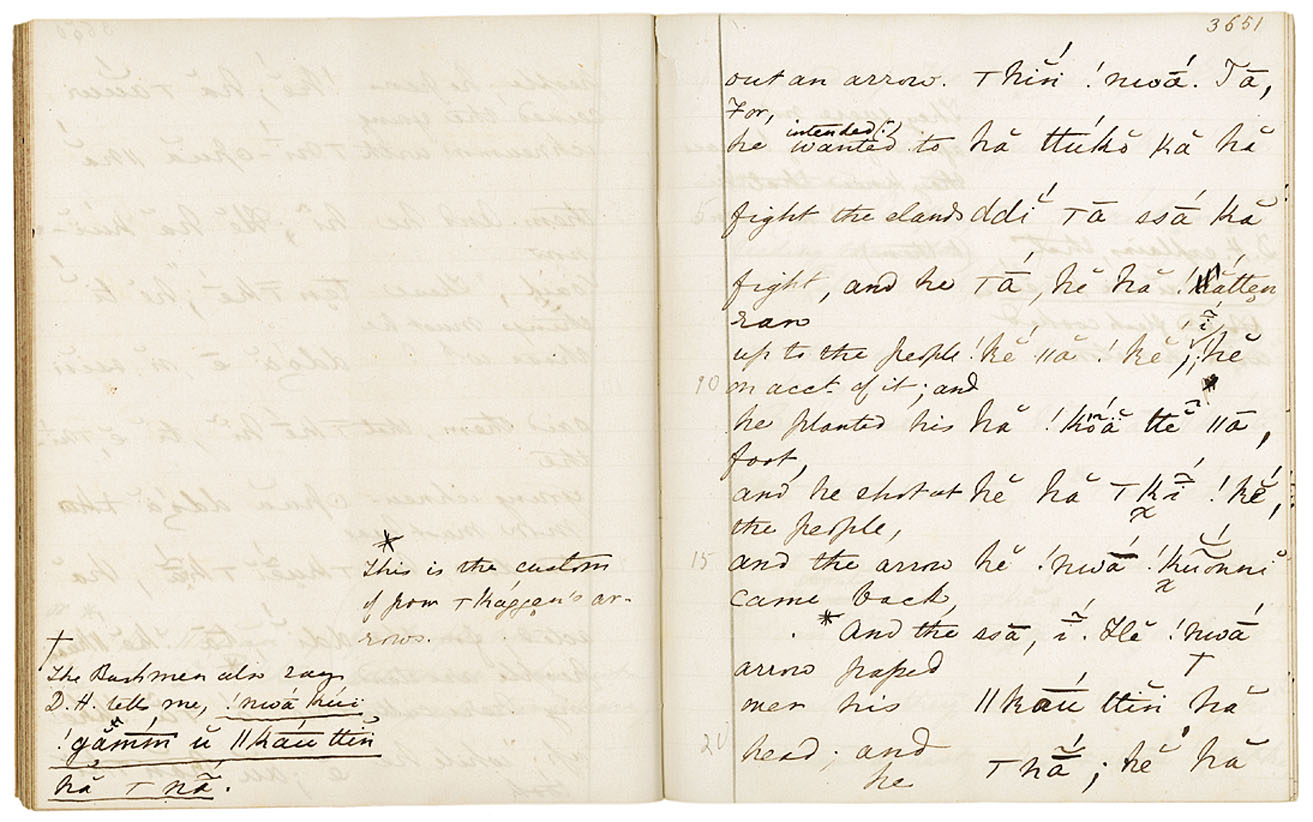 *
This is the custom
of poor ⊤kággen's ar-
rows.
†
The Bushmen also say
D. H. tells me, !nwá kúï
!gắmm̄ ŭ ǁkáū ttĭn
hă ⊤nā̆.
3651
out an arrow. ⊤hĭń !nwā́. Tā,
For,
intended(?)
he wanted to hă ttúkŏ kă hă
5
fight the elands ddĭ́ ⊤ā ssā́ kă
fight, and he ⊤ā́, hĕ hă !kắtten
ran
up to the people !kĕ́ ǁā !kĕ́ ĩ; hĕ
10 on acct. of it; and
he planted his hă !kõä ttĕ ǁā,
foot,
and he shot at hĕ hă ⊤kĩ́ !kĕ́,
the people,
15 and the arrow hĕ !nwā́ !kŭónni
came back,
* And the ssā, ĩ. Hĕ !nwā́
arrow passed †
over his ǁkáū ttĭn hă
20 head; and ⊤nā̆́; hĕ hă
he